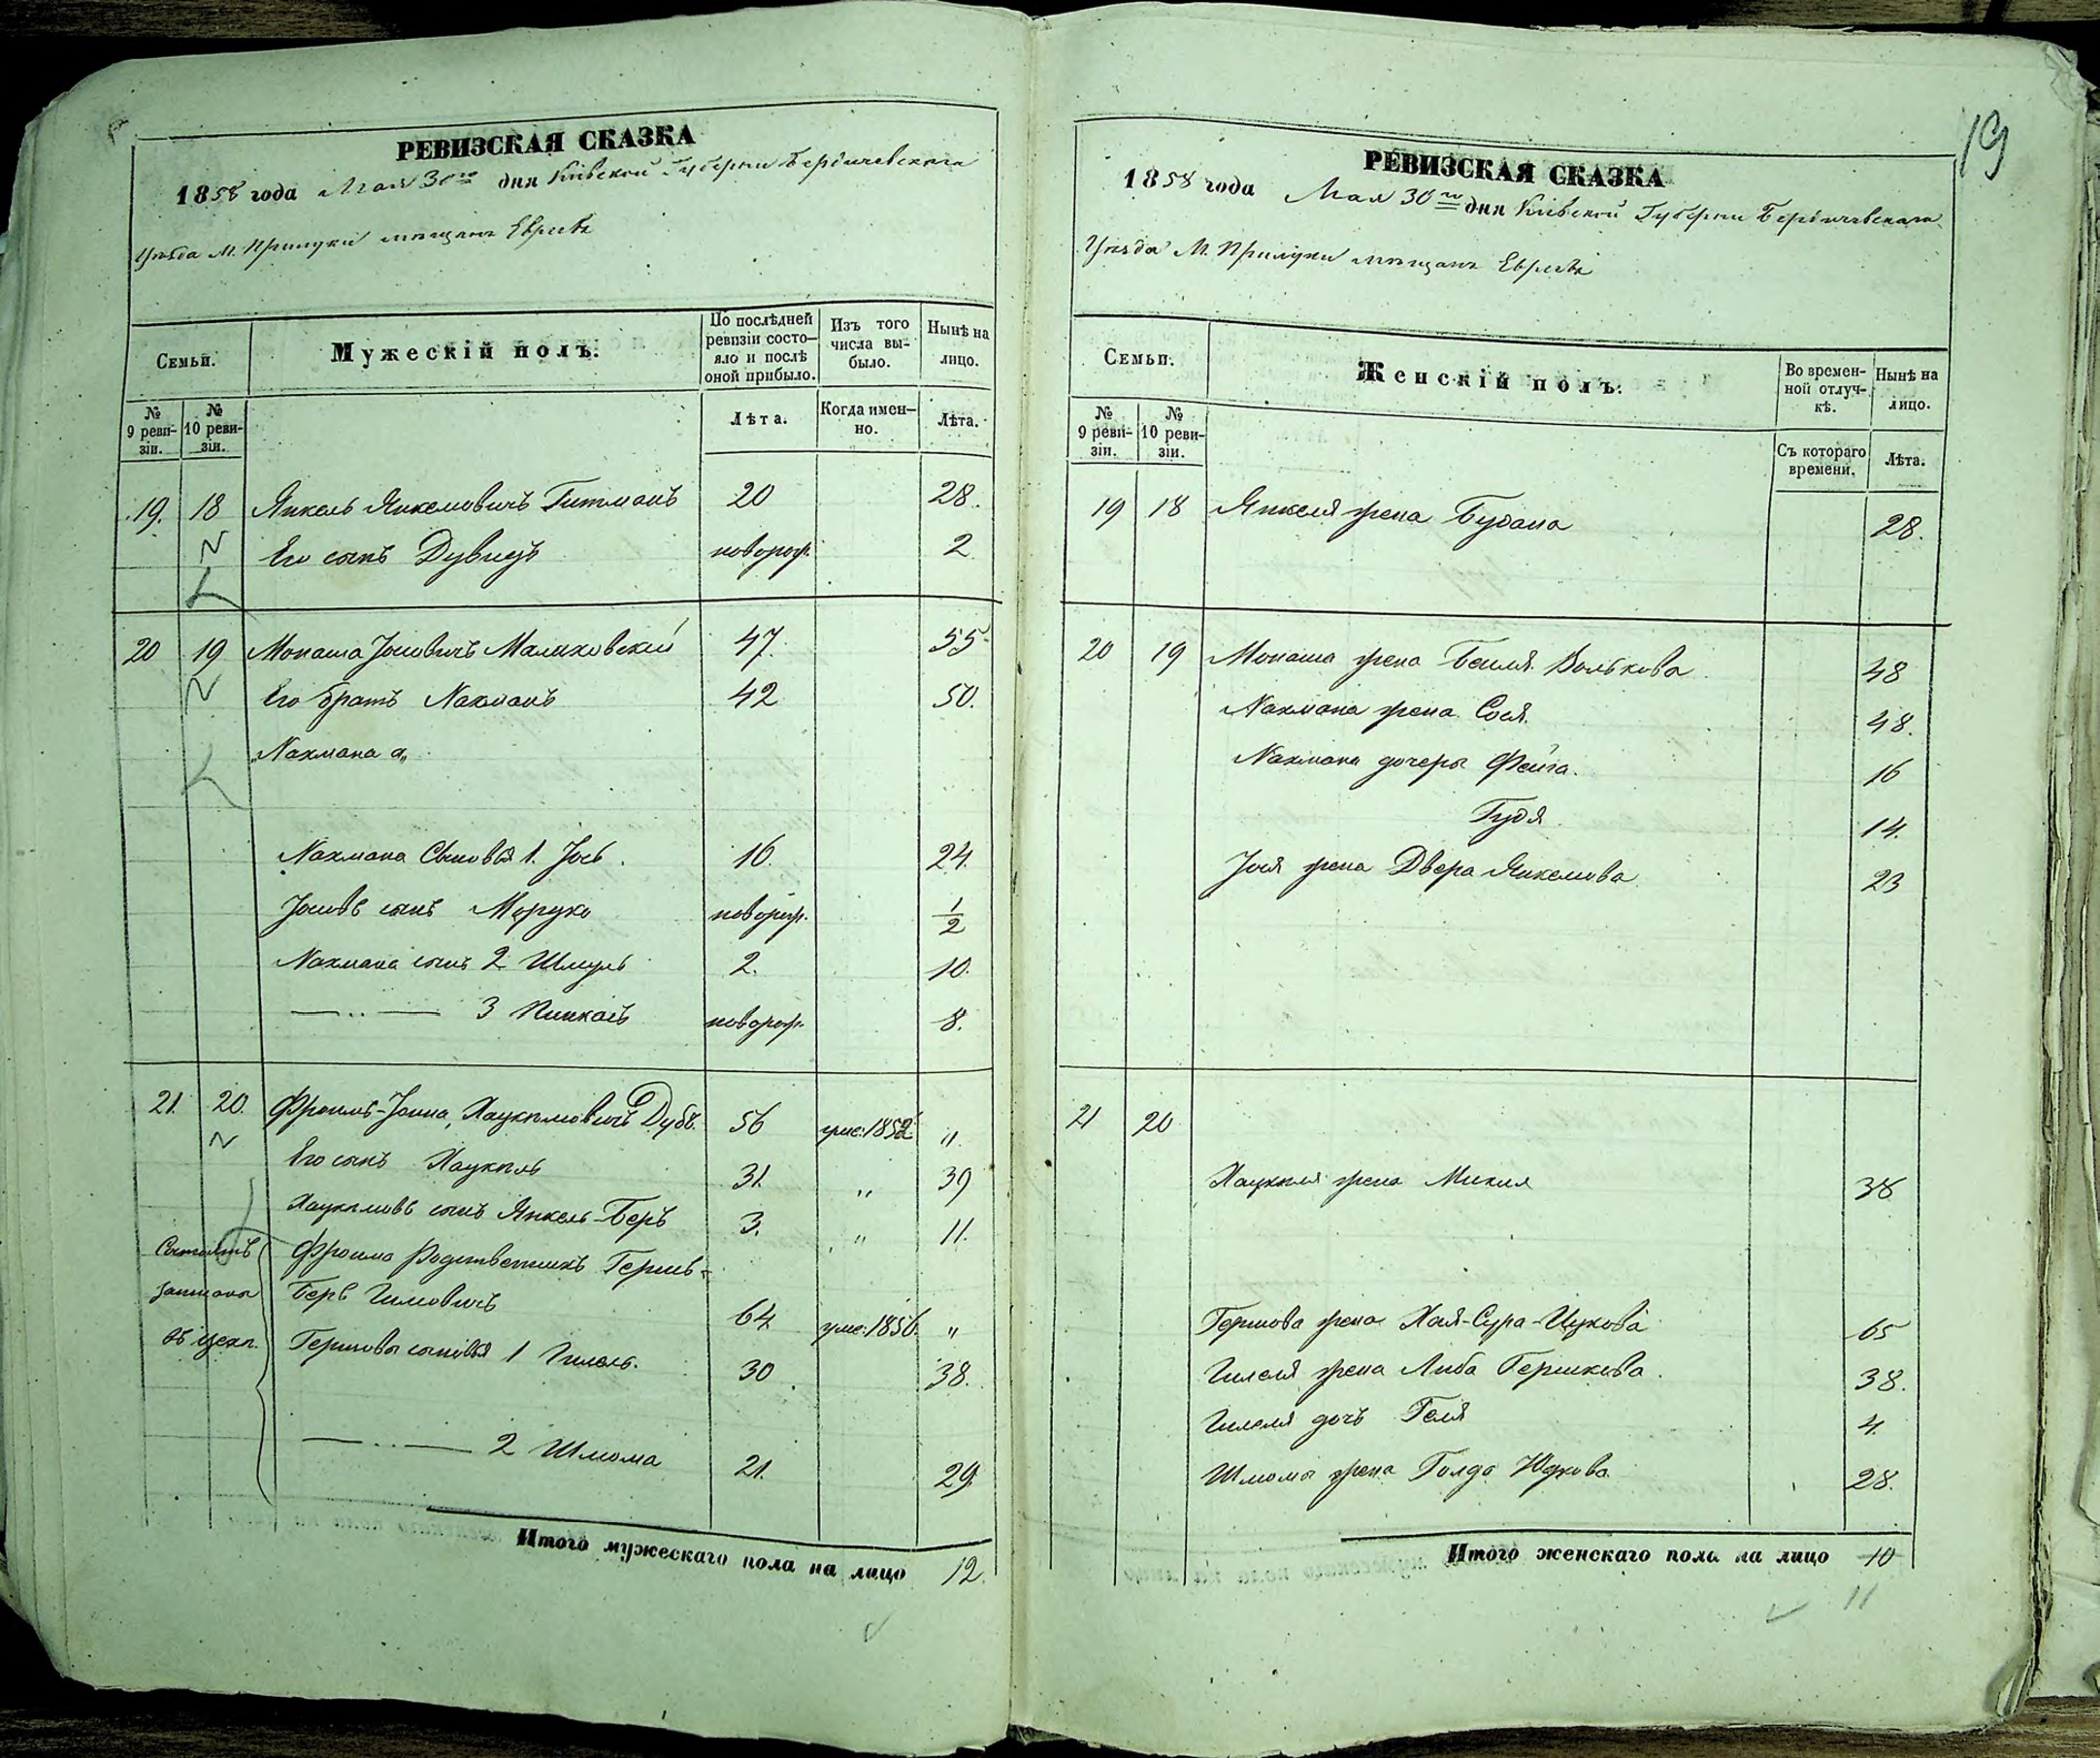 РЕВИЗСКАЯ СКАЗКА
1858 года Мая 30го дня Кіевской Губерніи Бердичевскаго
Уѣзда М. Прилуки мѣщанъ Евреевъ
Семьи.
Мужескій полъ.
По послѣдней ревизіи состо-
яло и послѣ оной прибыло.
Изъ того числа вы-
было.
Нынѣ на лицо.
№ 9 реви-
зіи.
№ 10 реви-
зіи.
Лѣта.
Когда имен-
но.
Лѣта.
19. 18 Янкель Янкелювичъ Гитманъ 20 28.
Его сынъ Дувидъ новорож. 2
20 19 Монаша Іосіовичъ Малиховскій 47. 55
Его братъ Нахманъ 42 50.
„Нахмана а„
Нахмана Сыновья 1. Іось. 16. 24.
Іосіовъ сынъ Мордко новорож. 1/2
Нахмана сынъ 2 Шмуль 2. 10.
—„— 3 Пинкасъ новорож. 8.
21. 20. Фроимъ-Іойна, Хаукелювичъ Дубъ. 56 уме: 1852 „
Его сынъ Хаукель 31. „ 39
Хаукелювъ сынъ Янкель-Беръ 3. „ 11.
Состоитъ Фроима Родственникъ Гершъ-
записаны Беръ Гилювичъ 64 уме: 1856. „
въ цехъ. Гершовы сыновья 1 Гилель. 30 38.
—„— 2 Шлиома 21. 29.
Итого мужескаго пола на лицо 12.
19
РЕВИЗСКАЯ СКАЗКА
1858 года Мая 30го дня Кіевской Губерніи Бердичевскаго
Уѣзда М. Прилуки мѣщанъ Евреевъ
Семьи.
Женскій полъ.
Во времен-
ной отлуч-
кѣ.
Нынѣ на лицо.
№ 9 реви-
зіи.
№ 10 реви-
зіи.
Съ котораго времени.
Лѣта.
19 18 Янкеля жена Бубана 28.
20 19 Монаша жена Бейля Волькова 48
Нахмана жена Сося. 48.
Нахмана дочеры Фейга. 16
Гудя 14.
Іося жена Двера Янкелюва 23
21 20
Хаукеля жена Михля 38
Гершова жена Хая-Сура-Ицкова 65
Гилеля жена Либа Гершкова. 38.
Гилеля дочь Геля 4.
Шлиомы жена Голда Юдкова. 28.
Итого женскаго пола на лицо 10
11